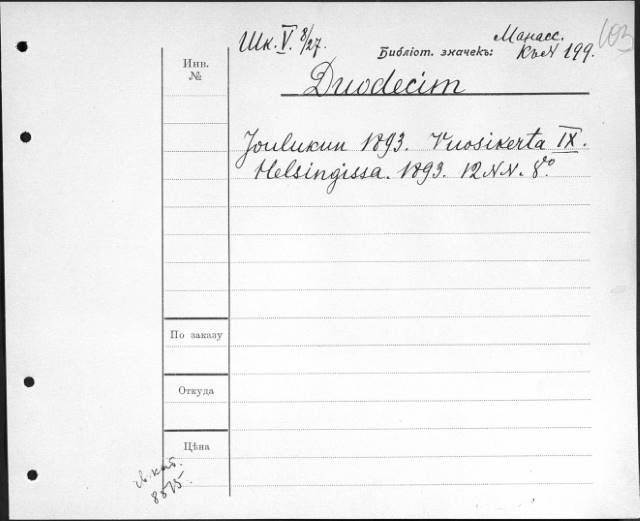 Шк. V. 8/27.
Библіот. значекъ:
Манасс.
Къ N 199.
103
Инв.
№
Duodecim
Joulukun 1893. Vuosikerta IX.
Helsingissa. 1893. 12 NN. 8º
По заказу
Откуда
Цѣна
св. кат.
8515.